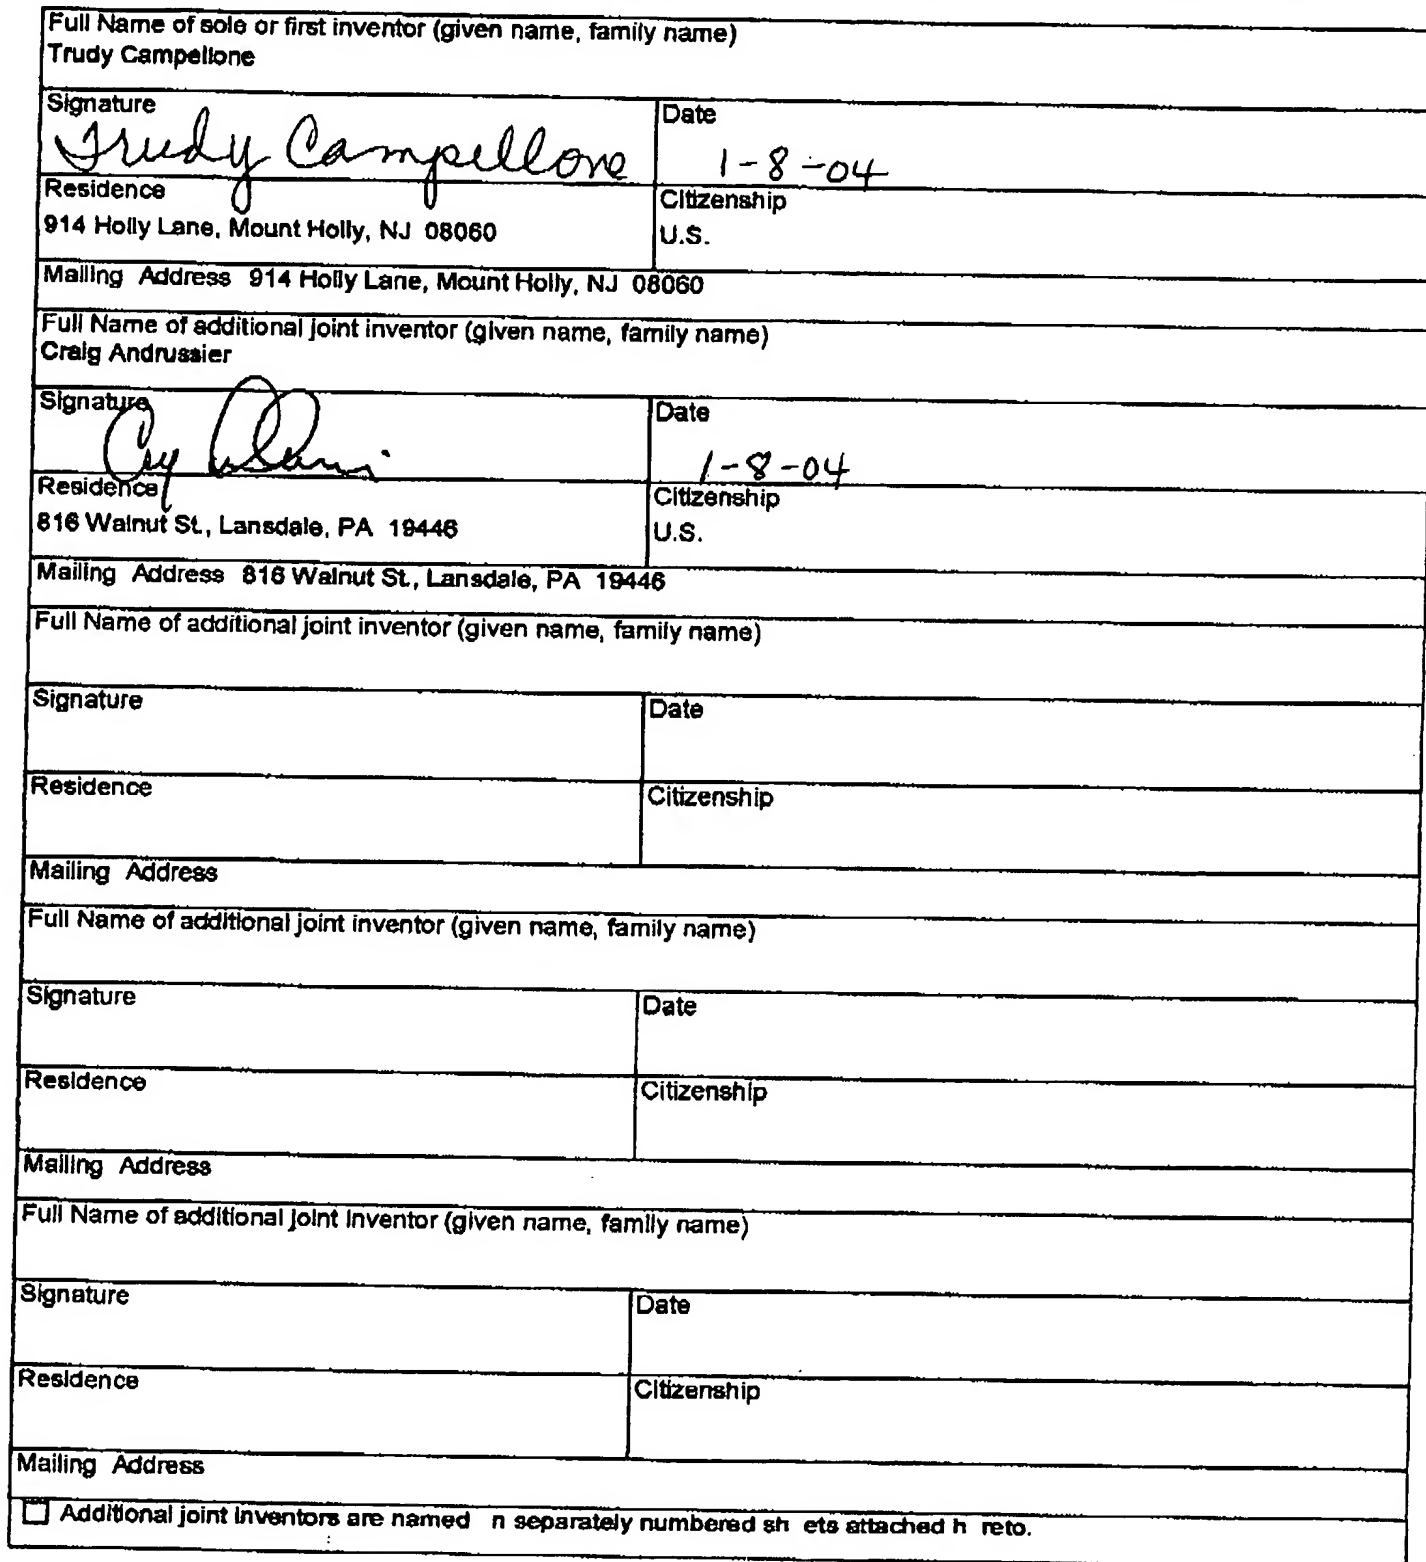 Full Name of sole or first inventor (given name, family name)
Trudy Campellone
Signature Date
Trudy Campellone 1-8-04
Residence Citizenship
914 Holly Lane, Mount Holly, NJ 08060 U.S.
Mailing Address 914 Holly Lane, Mount Holly, NJ 08060
Full Name of additional joint inventor (given name, family name)
Craig Andrussier
Signature Date
1-8-04
Residence Citizenship
816 Walnut St., Lansdale, PA 19446 U.S.
Mailing Address 816 Walnut St., Lansdale, PA 19446
Full Name of additional joint inventor (given name, family name)
Signature Date
Residence Citizenship
Mailing Address
Full Name of additional joint inventor (given name, family name)
Signature Date
Residence Citizenship
Mailing Address
Full Name of additional joint inventor (given name, family name)
Signature Date
Residence Citizenship
Mailing Address
Additional joint inventors are named n separately numbered sh ets attached h reto.